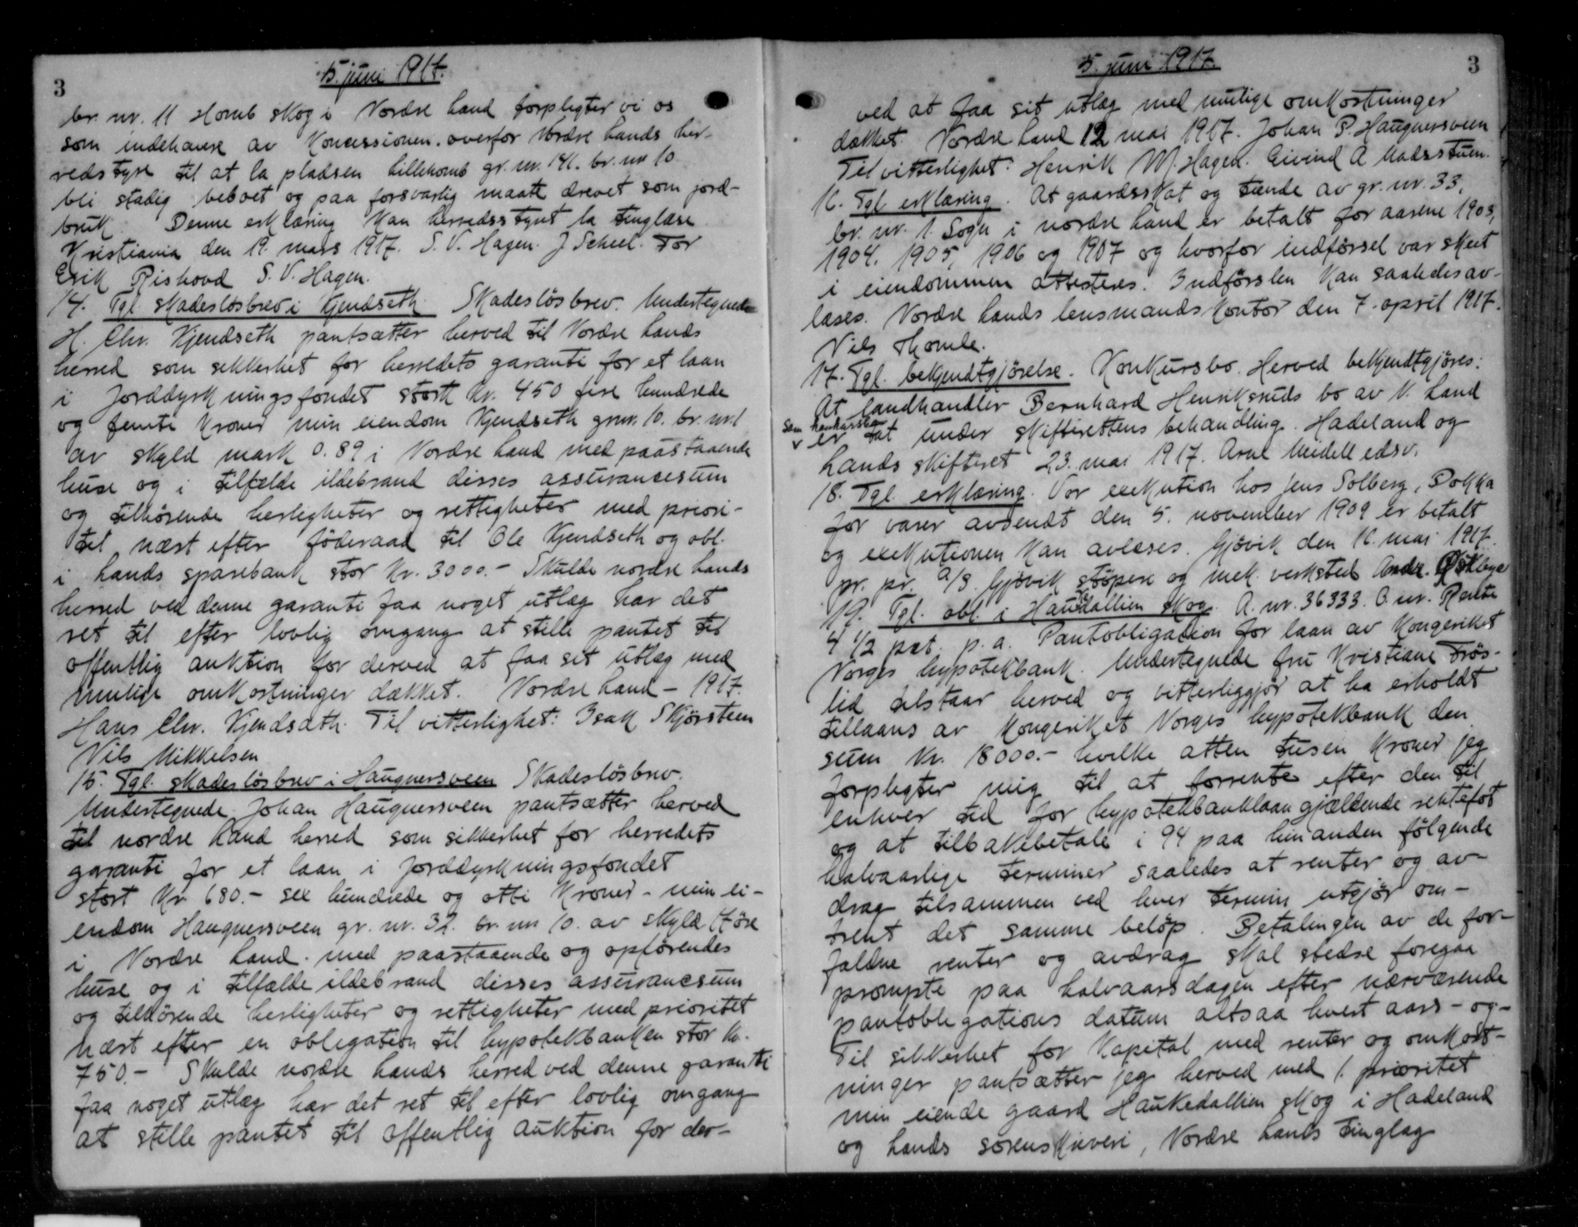 3
5. juni 1917.
br. nr. 11 Homb skog i Nordre Land forpligter vi os
som indehavere av Koncessionen overfor Nordre Lands her-
redstyre til at la pladsen Lillehomb gr. nr. 141. br. nr 10
bli stadig beboet og paa forsvarlig maate drevet som jord-
bruk. Denne erklæring kan herredsstyret la tinglæse.
Kristiania den 19. mars 1917. S. V. Hagen. J Scheel. Tor
Erik Rishovd S. V. Hagen.
14. Tgl. skadesløsbrev i Kjendseth Skadesløsbrev. Undertegnede
H. Chr. Kjendseth pantsætter herved til Nordre Lands
herred som sikkerhet for herredets garanti for et laan
i Jorddyrkningsfondet stort kr. 450 fire hundrede
og femti kroner min eiendom Kjendseth grnr. 10. br. nr. 1
av skyld mark 0.89 i Nordre Land med paastaaende
huse og i tilfælde ildebrand disses assurancesum
og tilhørende herligheter og rettigheter med priori-
tet næst efter føderaad til Ole Kjendseth og obl.
i Lands sparebank stor kr. 3000.- Skulde nordre Lands
herred ved denne garanti faa noget utlæg har det
ret til efter lovlig omgang at stille pantet til
offentlig auktion for derved at faa sit utlæg med
mulige omkostninger dækket. Nordre Land - 1917.
Hans Chr. Kjendseth. Til vitterlighet: Isak Skjørsteen
Nils Mikkelsen
15. Tgl. skadesløsbrev i Haugnersveen Skadesløsbrev.
Undertegnede Johan Haugnersveen pantsætter herved
til nordre Land herred som sikkerhet for herredets
garanti for et laan i Jorddyrkningsfondet
stort kr 680.- sex hundrede og otti kroner - min ei-
endom Haugnersveen gr. nr. 32. br. nr 10. av skyld 17 øre
i Nordre Land. med paastaaende og opførendes
huse og i tilfælde ildebrand disses assurancesum
og tilhørende herligheter og rettigheter med prioritet
næst efter en obligation til hypotekbanken stor kr.
750.- Skulde nordre Lands herred ved denne garanti
faa noget utlæg har det ret til efter lovlig omgang
at stille pantet til offentlig auktion for der-
3
5. juni 1917.
ved at faa sit utlæg med mulige omkostninger
dækket. Nordre Land 12 mai 1917. Johan P. Haugnersveen
Til vitterlighet: Henrik M. Hagen. Eivind A. Madsstuen.
16. Tgl erklæring. At gaardsskat og tiende av gr. nr. 33,
br. nr. 1. Sogn i nordre Land er betalt for aarene 1903,
1904. 1905, 1906 og 1907 og hvorfor indførsel var skeet
i eiendommen attesteres. Indførslen kan saaledes av-
læses. Nordre Lands lensmandskontor den 7. april 1917.
Nils Thomle.
17. Tgl. bekjendtgjørelse. Konkursbo. Herved bekjendtgjøres:
At landhandler Bernhard Henriksruds bo av N. Land
som konkursbo
v er tat under skifterettens behandling. Hadeland og
Lands skifteret 23. mai 1917. Arne Meidell edsv.
18. Tgl erklæring. Vor exekution hos Jens Solberg, Dokka
for varer avsendt den 5. november 1909 er betalt
og exekutionen kan avlæses. Gjøvik den 16. mai 1917.
pr. pr. A/S Gjøvik støperi og mek. verksted Andr. Østbye
19. Tgl. obl. i Haukedallien skog. A. nr. 36333. O. nr. Rente
4 1/2 pct. p. a. Pantobligation for laan av Kongeriket
Norges hypotekbank. Undertegnede fru Kristiane Frøs-
lid tilstaar herved og vitterliggjør at ha erholdt
tillaans av Kongeriket Norges hypotekbank den
sum kr. 18000.- hvilke atten tusen kroner jeg
forpligter mig til at forrente efter den til
enhver tid for hypotekbanklaan gjældende rentefot
og at tilbakebetale i 94 paa hinanden følgende
halvaarlige terminer saaledes at renter og av-
drag tilsammen ved hver termin utgjør om-
trent det samme beløp. Betalingen av de for-
faldne renter og avdrag skal stedse foregaa
prompte paa halvaarsdagen efter nærværende
pantobligations datum altsaa hvert aars - og -
Til sikkerhet for kapital med renter og omkost-
ninger pantsætter jeg herved med 1. prioritet
min eiende gaard Haukedallien skog i Hadeland
og Lands sorenskriveri, Nordre Lands tinglag